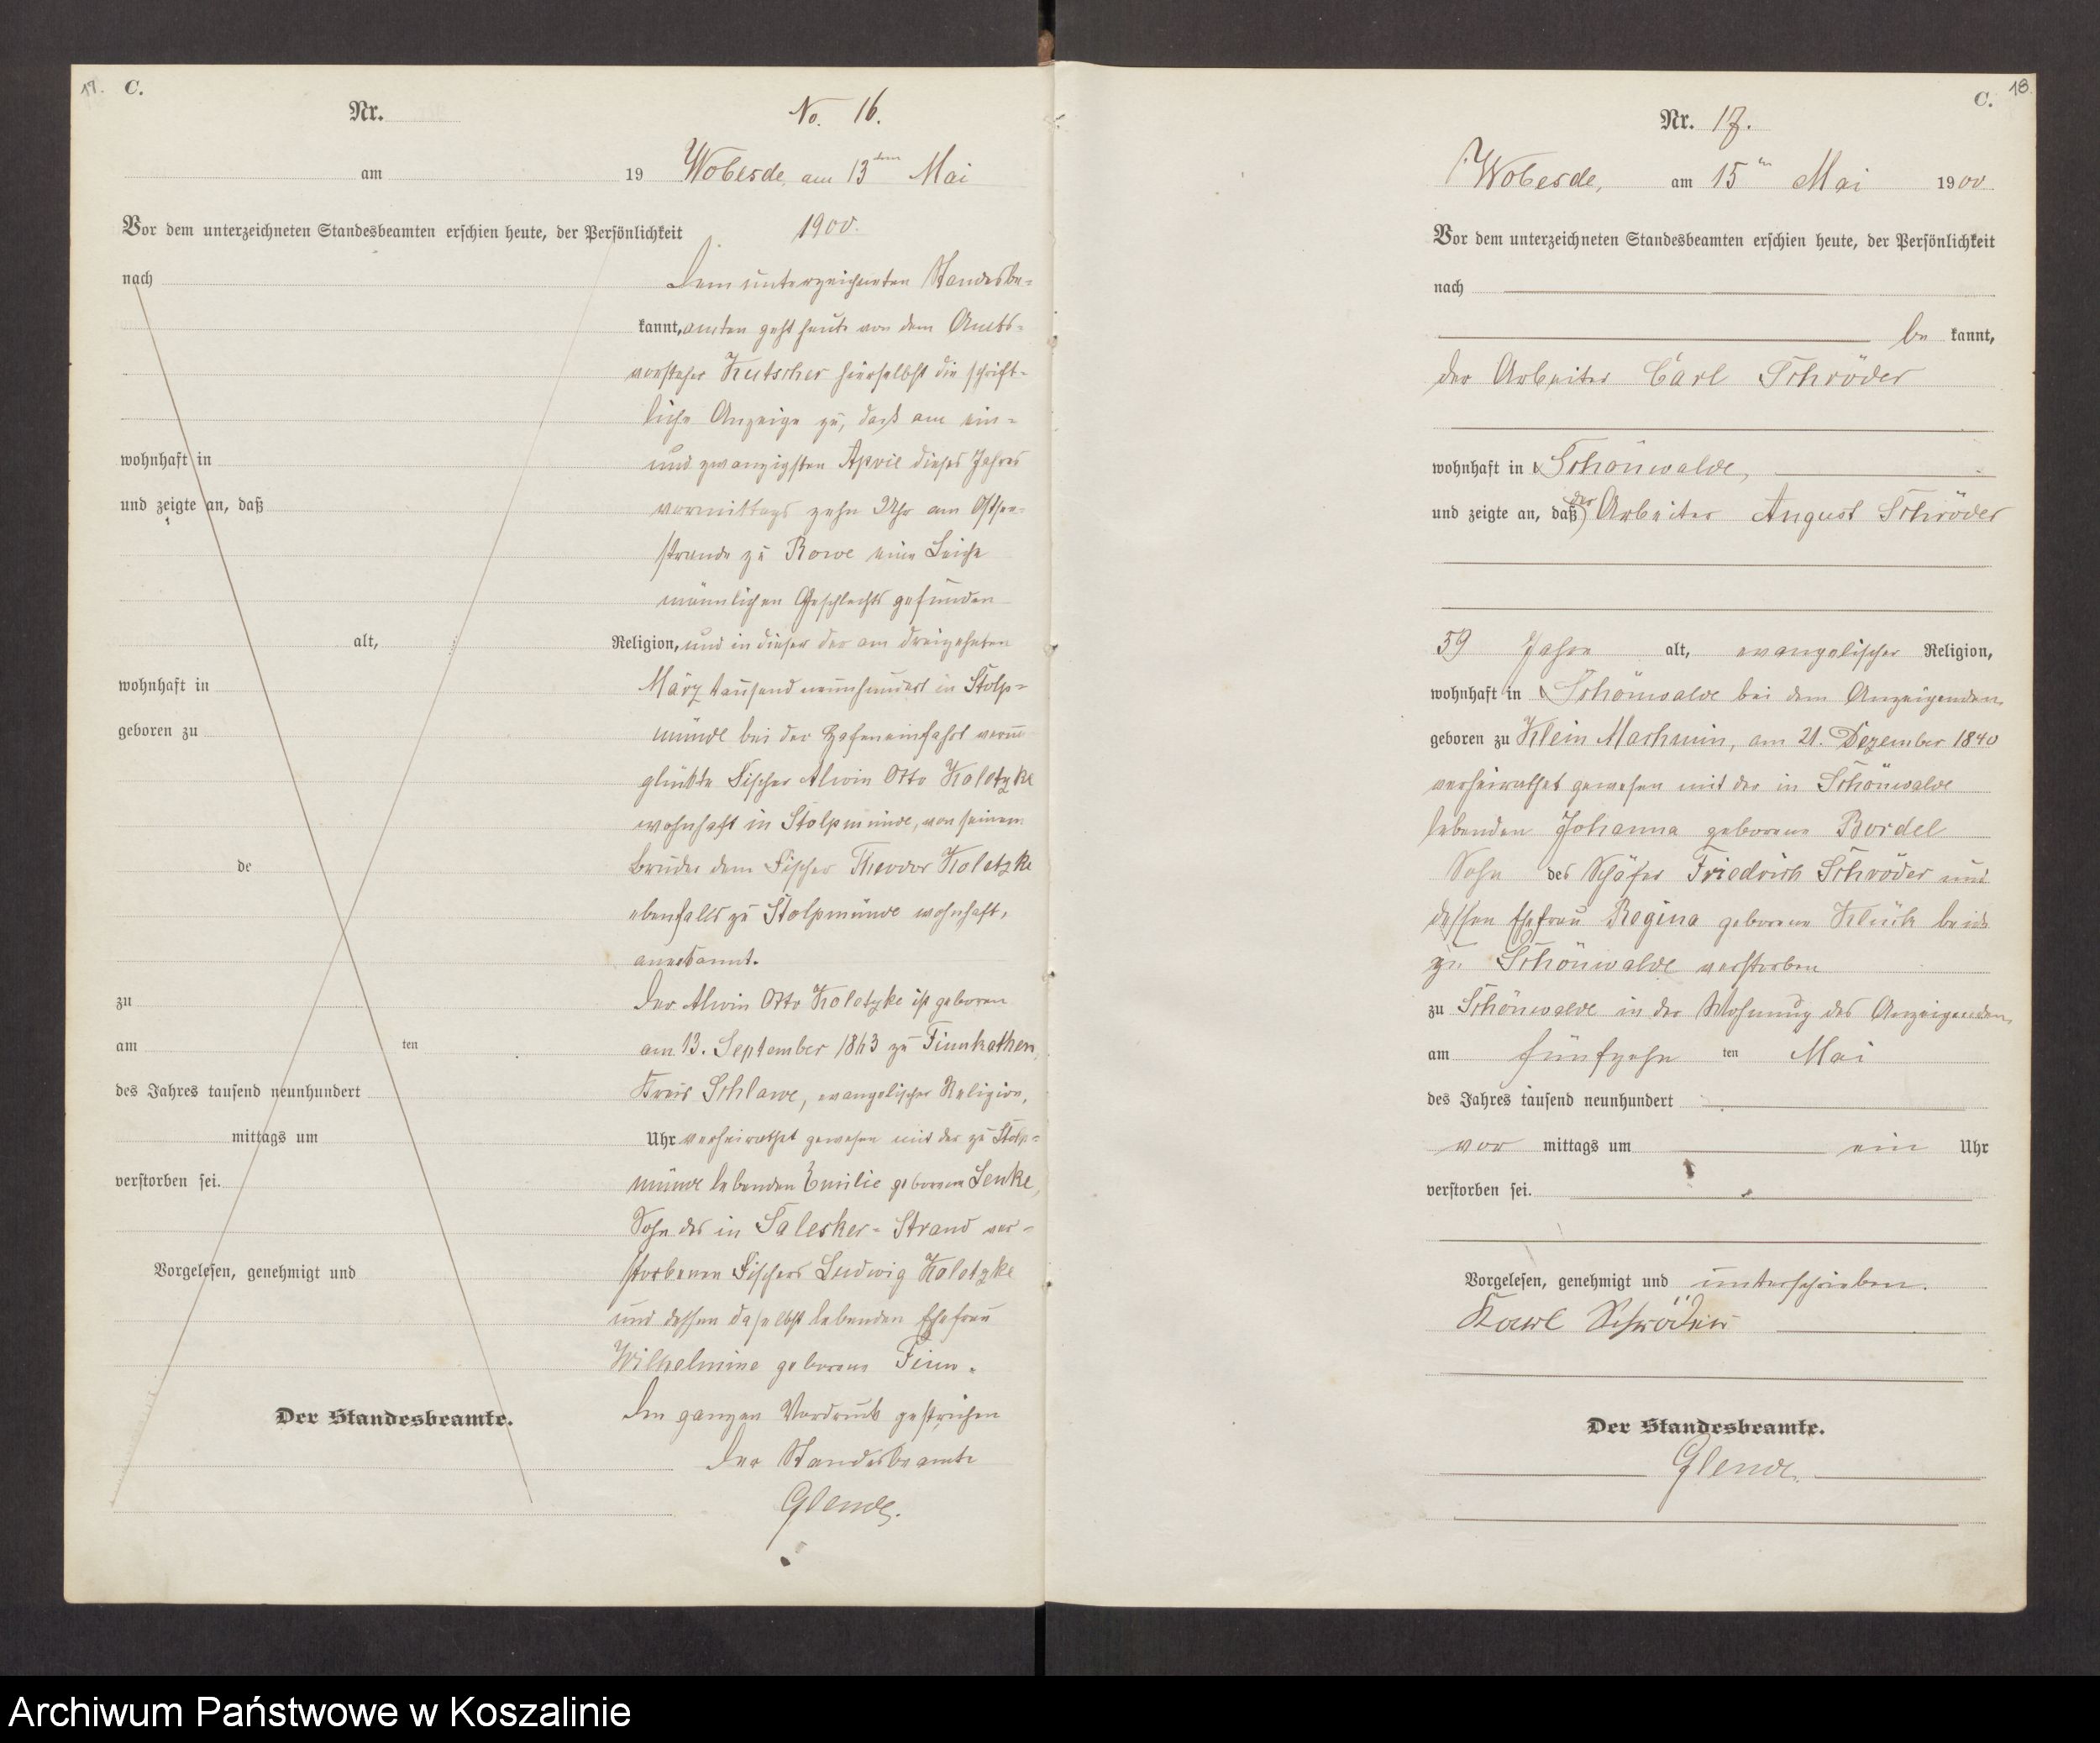 17.
C.
Nr.
No. 16.
am 19 Wobesde, am 13ten Mai
Vor dem unterzeichneten Standesbeamten erschien heute, der Persönlichkeit 1900.
nach
Dem unterzeichneten Standesbe=
kannt, amten geht heute von dem Amts=
vorsteher Kutscher hierselbst die schrift=
liche Anzeige zu, daß am ein=
wohnhaft in und zwanzigsten April dieses Jahres
und zeigte an, daß vormittags zehn Uhr am Ostsee=
strande zu Rowe eine Leiche
männlichen Geschlechts gefunden
alt, Religion, und in dieser der am dreizehnten
wohnhaft in März tausend neunhundert in Stolp=
geboren zu münde bei der Hafeneinfahrt verun
glückte Fischer Alwin Otto Koletzke
wohnhaft in Stolpmünde, von seinem
de Bruder dem Fischer Theodor Koletzke
ebenfalls zu Stolpmünde wohnhaft,
anerkannt.
zu Der Alwin Otto Koletzke ist geboren
am ten am 13. September 1863 zu Finnkathen,
des Jahres tausend neunhundert Kreis Schlawe, evangelischer Religion,
mittags um Uhr verheirathet gewesen mit der zu Stolp=
verstorben sei. münde lebenden Emilie geborene Lenke,
Sohn des in Salesker=Strand ver=
Vorgelesen, genehmigt und storbenen Fischers Ludwig Koletzke
und dessen daselbst lebenden Ehefrau
Wilhelmine geborene Finn.
Der Standesbeamte. Den ganzen Vordruck gestrichen
Der Standesbeamte
Glende.
18.
C.
Nr. 17.
Wobesde, am 15ten Mai 1900
Vor dem unterzeichneten Standesbeamten erschien heute, der Persönlichkeit
nach
be kannt,
der Arbeiter Carl Schröder
wohnhaft in Schönwalde,
und zeigte an, daß der Arbeiter August Schröder
59 Jahre alt, evangelischer Religion,
wohnhaft in Schönwalde bei dem Anzeigenden,
geboren zu Klein Machmin, am 21. Dezember 1840
verheirathet gewesen mit der in Schönwalde
lebenden Johanna geborene Bordel
Sohn des Schäfer Friedrich Schröder und
dessen Ehefrau Regina geborene Klück beide
zu Schönwalde verstorben
zu Schönwalde in der Wohnung des Anzeigenden,
am fünfzehn ten Mai
des Jahres tausend neunhundert
vor mittags um ein Uhr
verstorben sei.
Vorgelesen, genehmigt und unterschrieben.
Karl Schröder
Der Standesbeamte.
Glende.
Archiwum Państwowe w Koszalinie